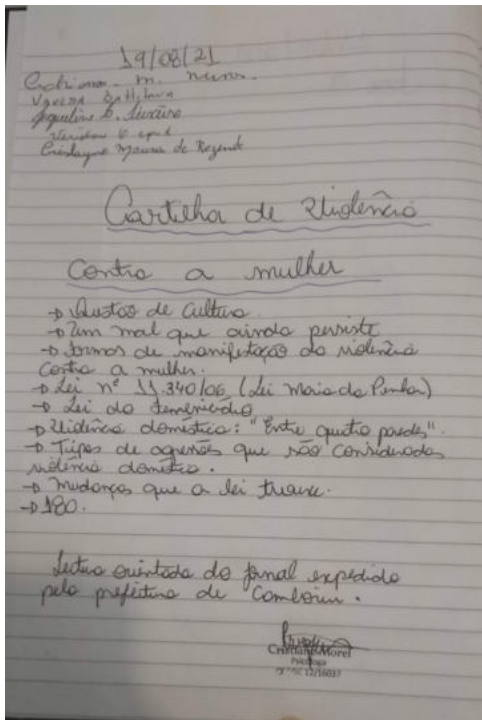 19/08/21
m. nunes.
Jaqueline B. Teixeira
Moura de Rezende
Cartilha de Violência
Contra a mulher
→ Questão de Cultura
→ Um mal que ainda persiste
→ formas de manifestação da violência
Contra a mulher.
→ Lei nº 11.340/06 (Lei Maria da Penha)
→ Lei do feminicídio
→ Violência doméstica: "Entre quatro paredes".
→ Tipos de agressões que são consideradas
violência doméstica.
→ Mudanças que a lei trouxe.
→ 180.
Leitura orientada do jornal expedido
pela prefeitura de Camboriu.
Morel
Psicóloga
12/16037